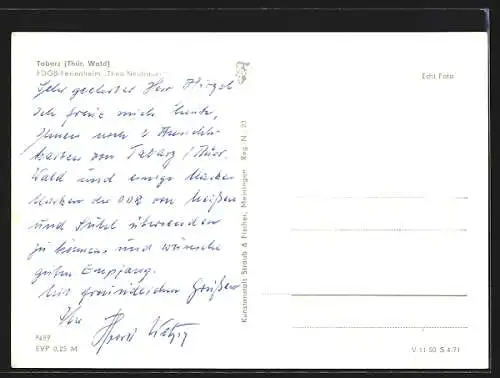 Tabarz (Thür. Wald)
FDGB-Ferienheim „Theo Neubauer"
Echt Foto
Sehr geehrter Herr
ich freue mich heute,
Ihnen noch 2 Ansichts-
karten von Tabarz / Thür.
Wald und einige Marken
der DDR von Meißen
und Suhl übersenden
zu können, und wünsche
guten Empfang.
Mit freundlichen Grüßen
Ihr Horst
Kunstanstalt Straub & Fischer, Meiningen Reg. N. 23
EVP 0,25 M
V 11 50 S 4/71